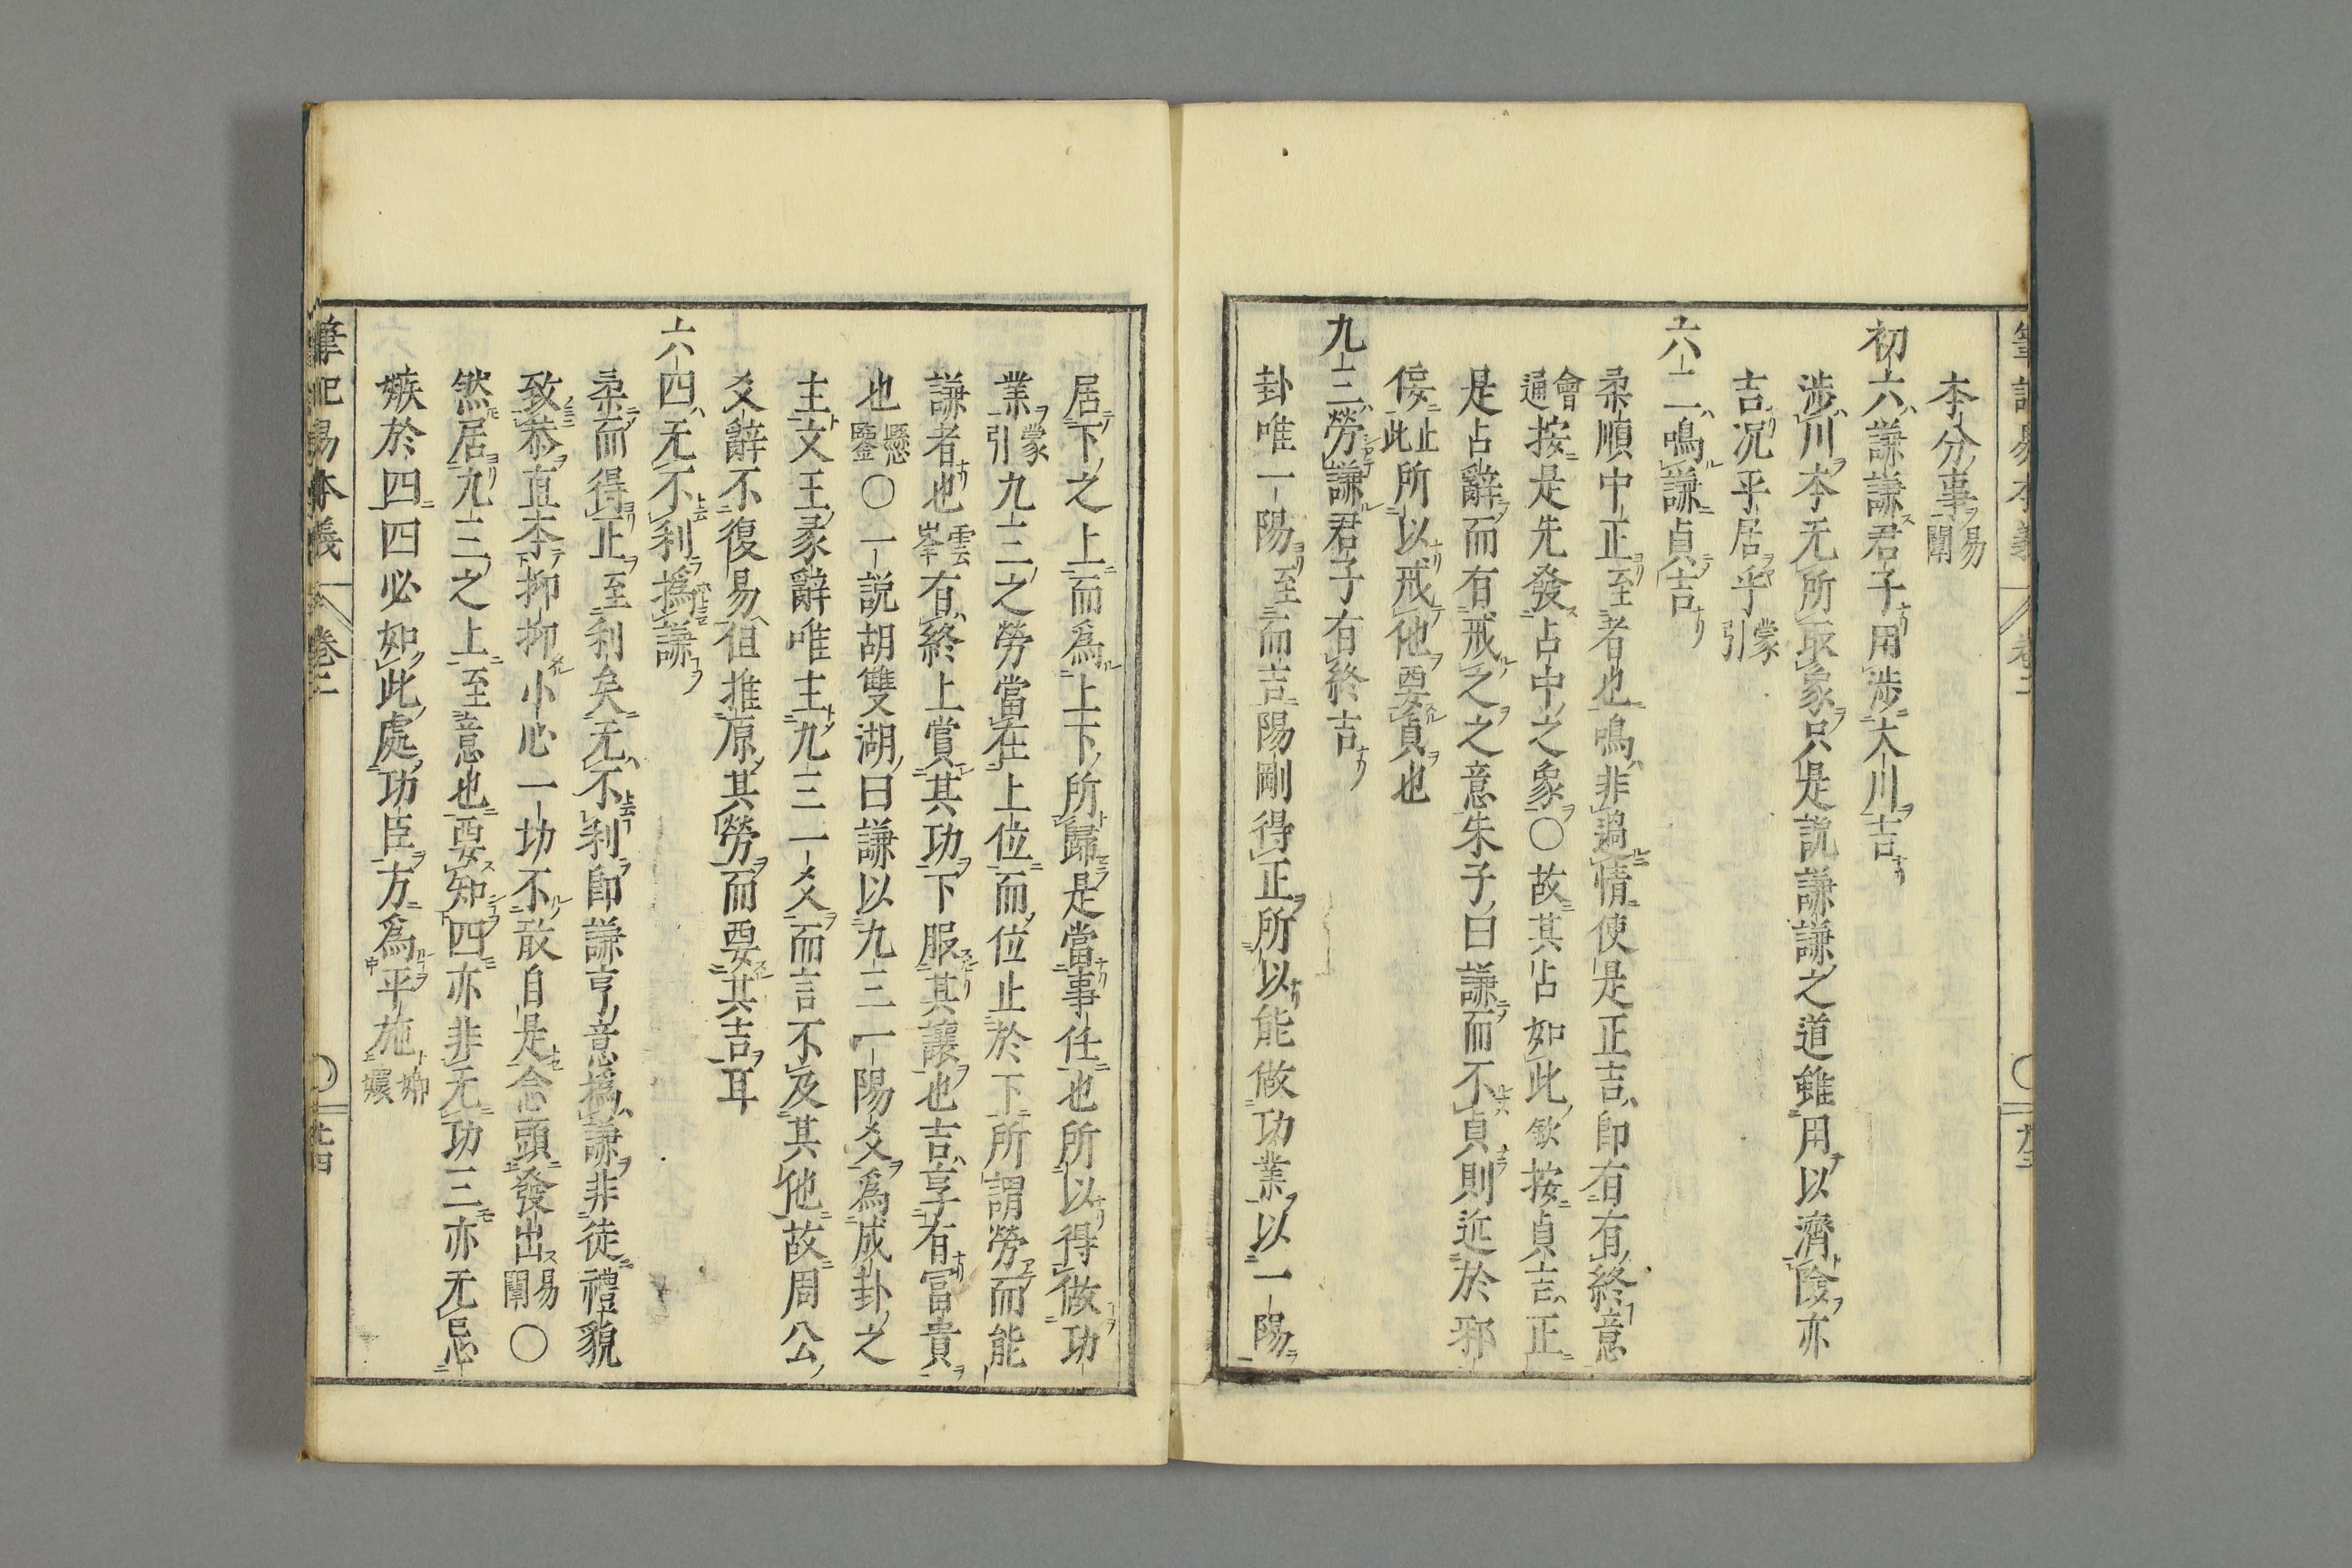 本分事易闡
初六謙謙君子用涉大川吉
涉川本无所取象只是說謙謙之道雖用以濟險亦
吉况平居乎蒙引
六二鳴謙貞吉
柔順中正至者也鳴非過情使是正吉即有有終意
會通按是先發占中之象○故其占如此欽按貞吉正
是占辭而有戒之之意朱子曰謙而不貞則近於邪
佞止此所以戒他要貞也
九三勞謙君子有終吉
卦唯一陽至而吉陽剛得正所以能做功業以一陽
居下之上而爲上下所歸是當事任也所以得做功
業蒙引九三之勞當在上位而位止於下所謂勞而能
謙者也雲峯有終上賞其功下服其讓也吉享有富貴
也懸鑒○一說胡雙湖曰謙以九三一陽爻爲成卦之
主文王彖辭唯主九三一爻而言不及其他故周公
爻辭不復易但推原其勞而要其吉耳
六四无不利撝謙
柔而得正至利矣无不利即謙亨意撝謙非徒禮貌
致恭直本抑抑小心一切不敢自是念頭發出易闡○
然居九三之上至意也要知四亦非无功三亦无忌
嫉於四四必如此處功臣方爲平施嫏嬛
筆記易本義 卷二 九四